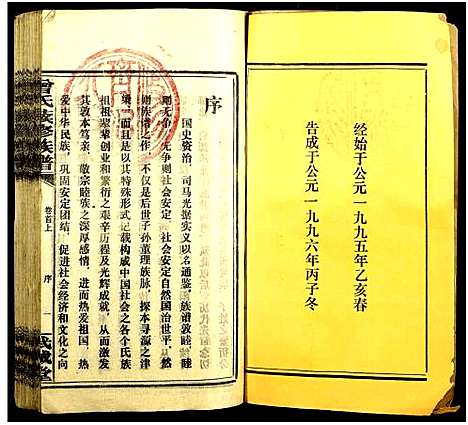 经始于公元一九九五年乙亥春
告成于公元一九九六年丙子冬
序
国史资治，司马光据实义以名通鉴，族谱敦睦，睦
则无争，无争则社会安定，社会安定自然国治世平。从
则族谱之作，不仅是后世子孙董理族脉，探本寻源之津
梁，而且是以其特殊形式记载构成中国社会之各个氏族
祖祖辈辈创业和繁衍之艰辛历程及光辉成就，从而激发
其敦本笃亲，敬宗睦族之深厚感情，进而热爱祖国，热
爱中华民族，巩固安定团结，促进社会经济和文化之向
曾氏族修族谱
卷首上
序
一
武城堂